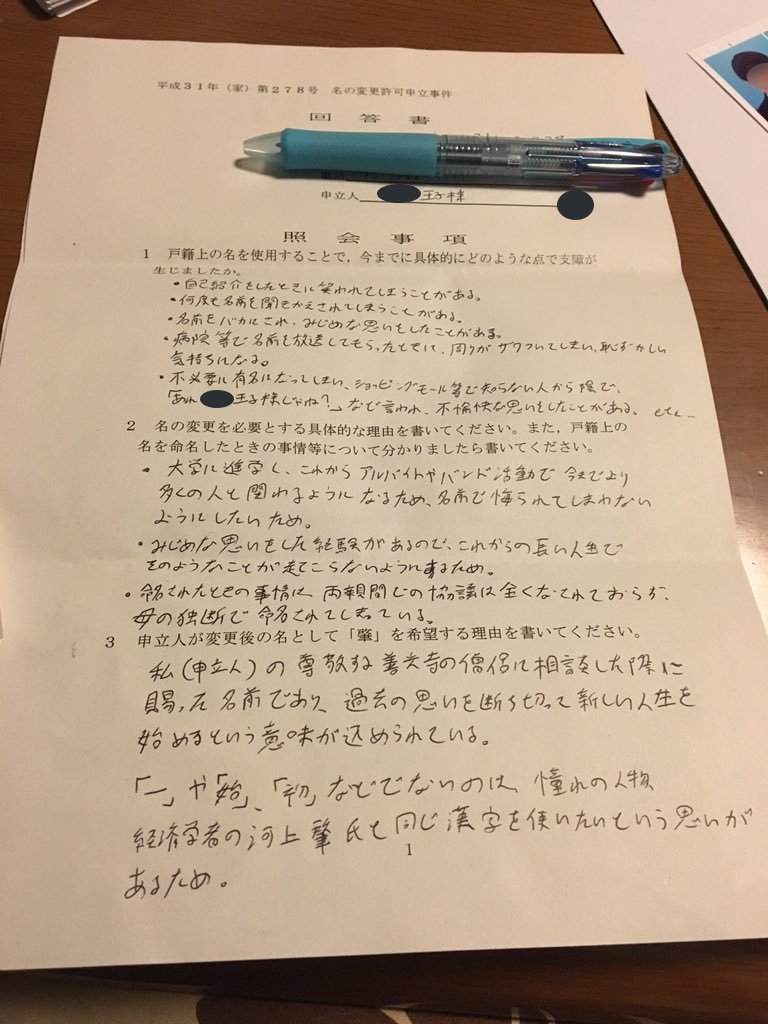 平成31年（家）第278号　名の変更許可申立事件
回　答　書
申立人　王子様
照　会　事　項
1　戸籍上の名を使用することで，今までに具体的にどのような点で支障が
生じましたか。
・自己紹介をしたときに笑われてしまうことがある。
・何度も名前を聞きかえされてしまうことがある。
・名前をバカにされ、みじめな思いをしたことがある。
・病院等で名前を放送してもらったときに、周りがザワついてしまい、恥ずかしい
気持ちになる。
・不必要に有名になってしまい、ショッピングモール等で知らない人から陰で、
「あれ王子様じゃね?」などと言われ、不愉快な思いをしたことがある。etc…
2　名の変更を必要とする具体的な理由を書いてください。また，戸籍上の
名を命名したときの事情等について分かりましたら書いてください。
・大学に進学し、これからアルバイトやバンド活動で今まで​より
多くの人と関わるようになるため、名前で侮られてしまわない
ようにしたいため。
・みじめな思いをした経験があるので、これからの長い人生で
そのようなことが起こらないようにするため。
・命名されたときの事情は、両親間での協議は全くなされておらず、
母の独断で命名されてしまっている。
3　申立人が変更後の名として「肇」を希望する理由を書いてください。
私(申立人)の尊敬する善光寺の僧侶に相談した際に
賜った名前であり、過去の思いを断ち切って新しい人生を
始めるという意味が込められている。
「一」や「始」、「初」などでないのは、憧れの人物、
経済学者の河上肇氏と同じ漢字を使いたいという思いが
あるため。
1